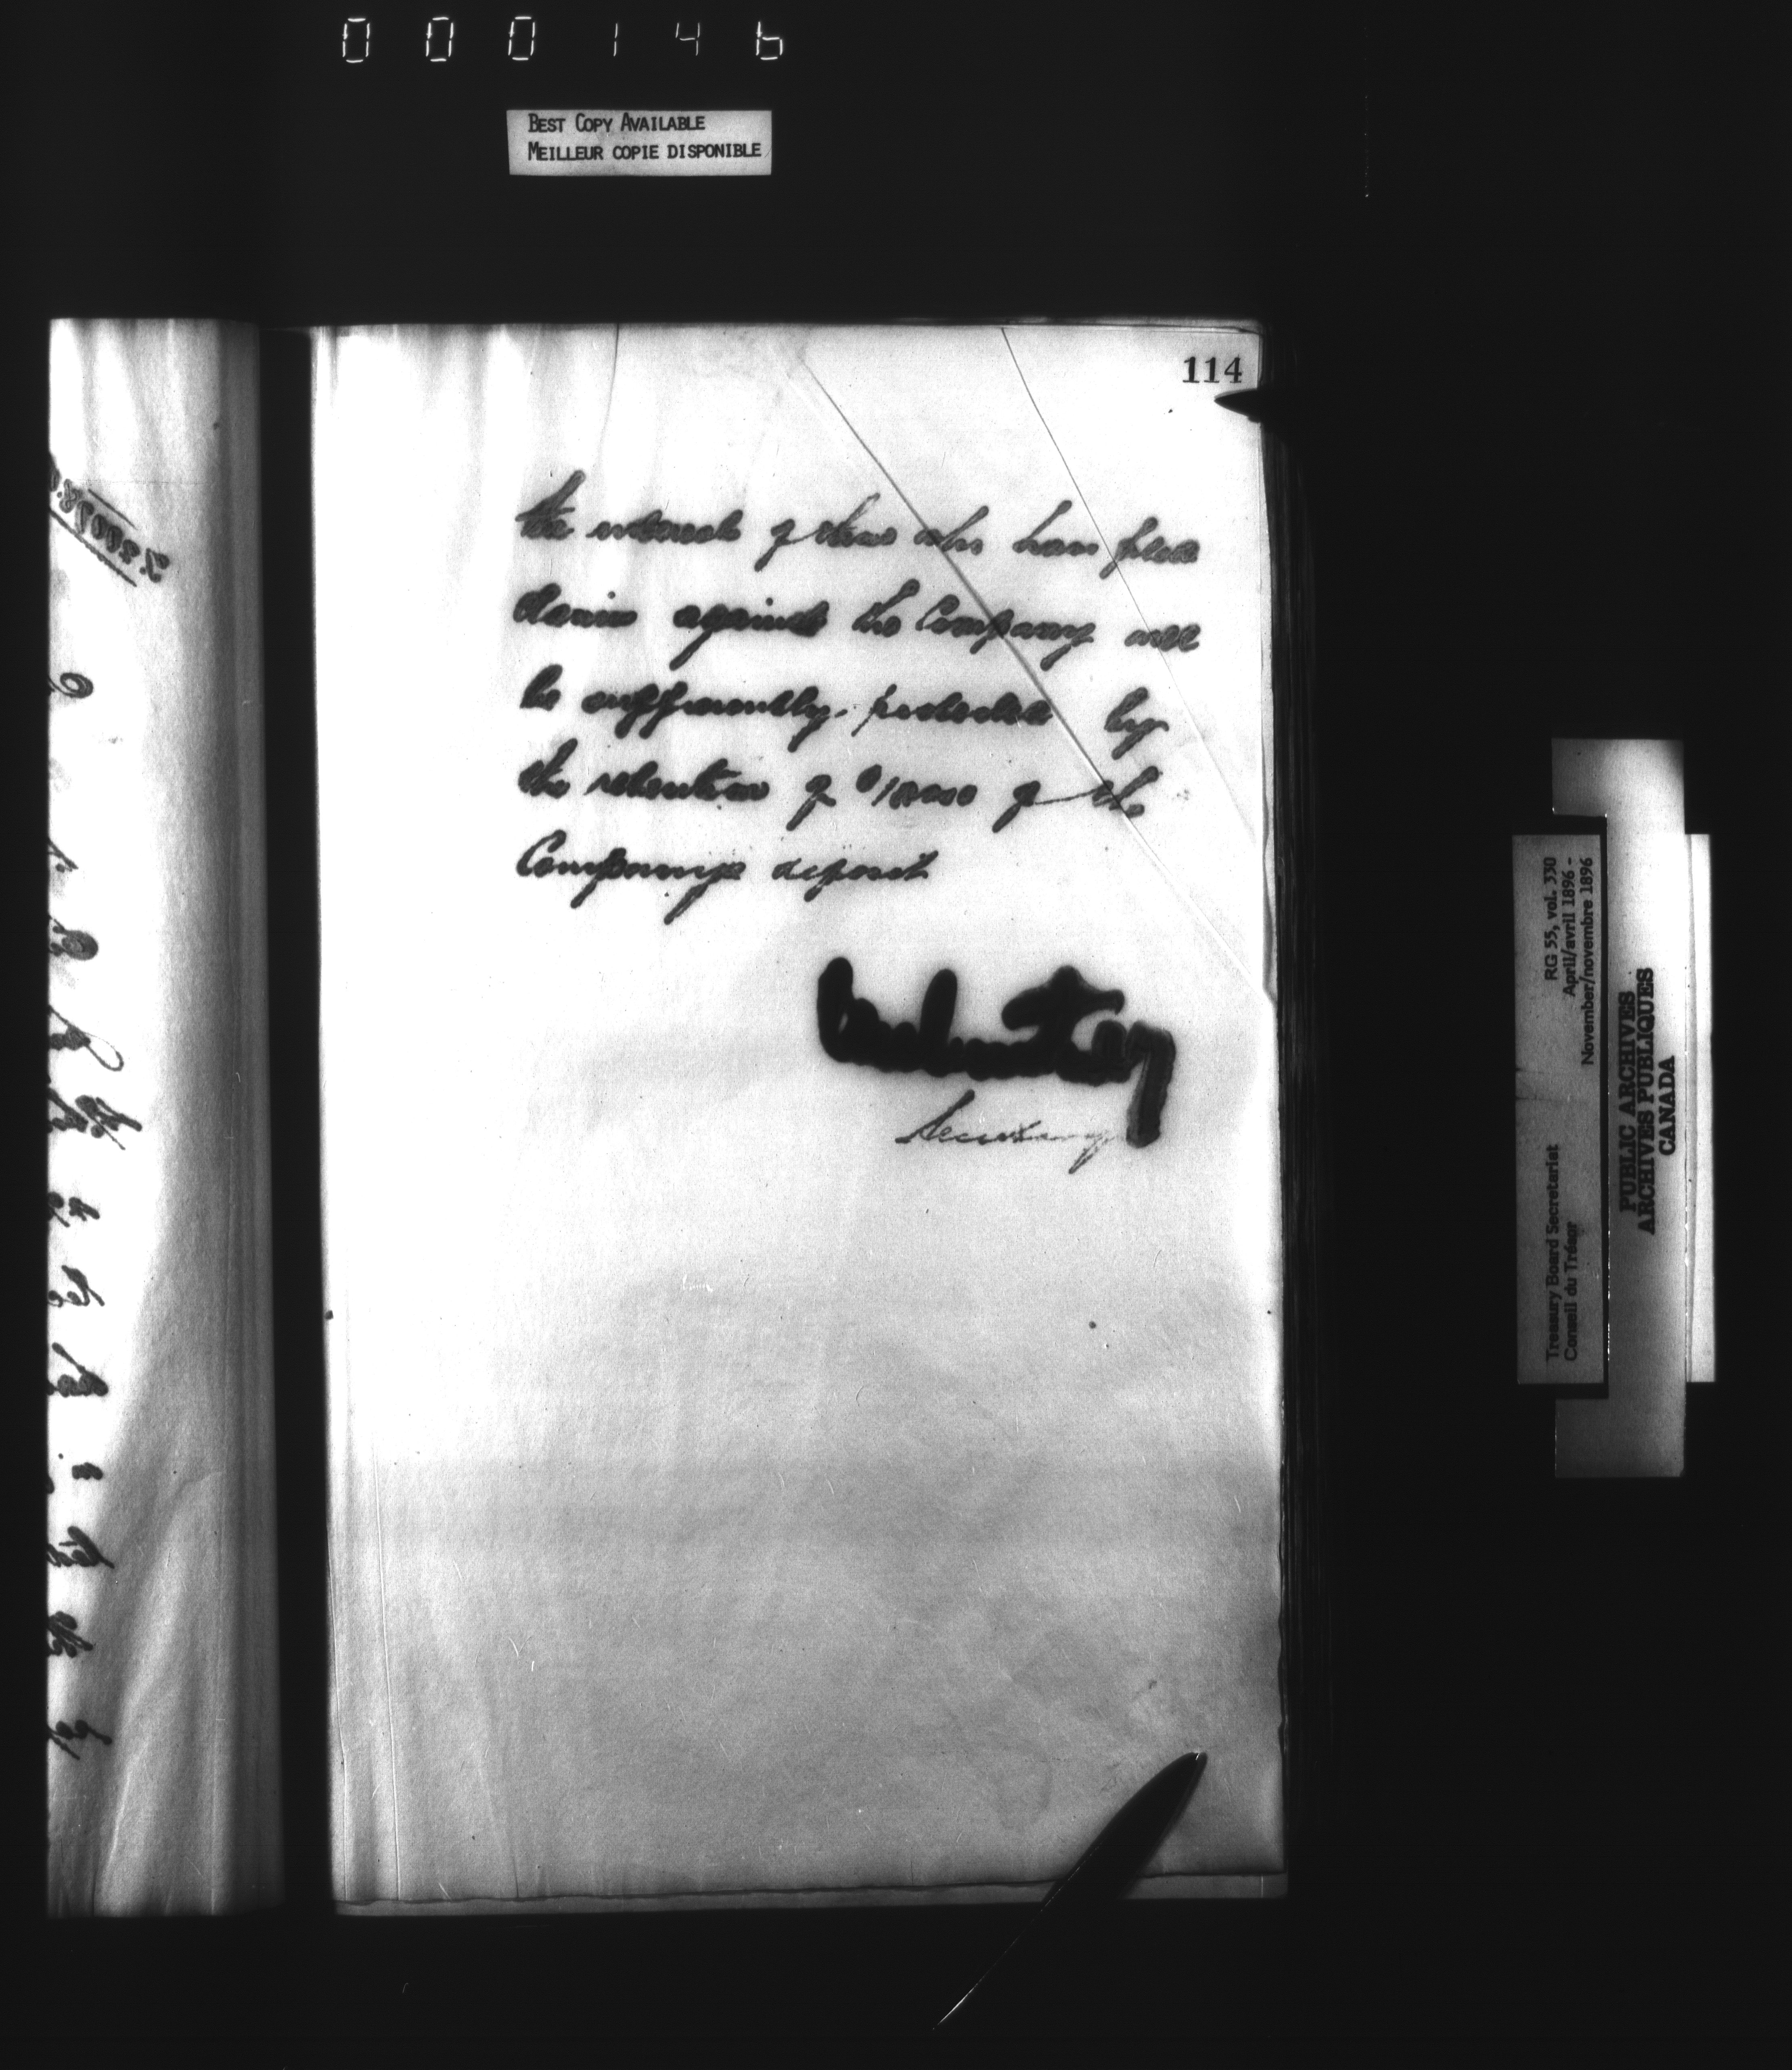 000146
BEST COPY AVAILABLE
MEILLEUR COPIE DISPONIBLE
114
the interests of those who have filed
claims against the Company will
be sufficiently protected by
the retention of $ of the
Company's deposit
Secretary
RG 55, vol. 330
April/avril 1896 -
November/novembre 1896
Treasury Board Secretariat
Conseil du Trésor
PUBLIC ARCHIVES
ARCHIVES PUBLIQUES
CANADA